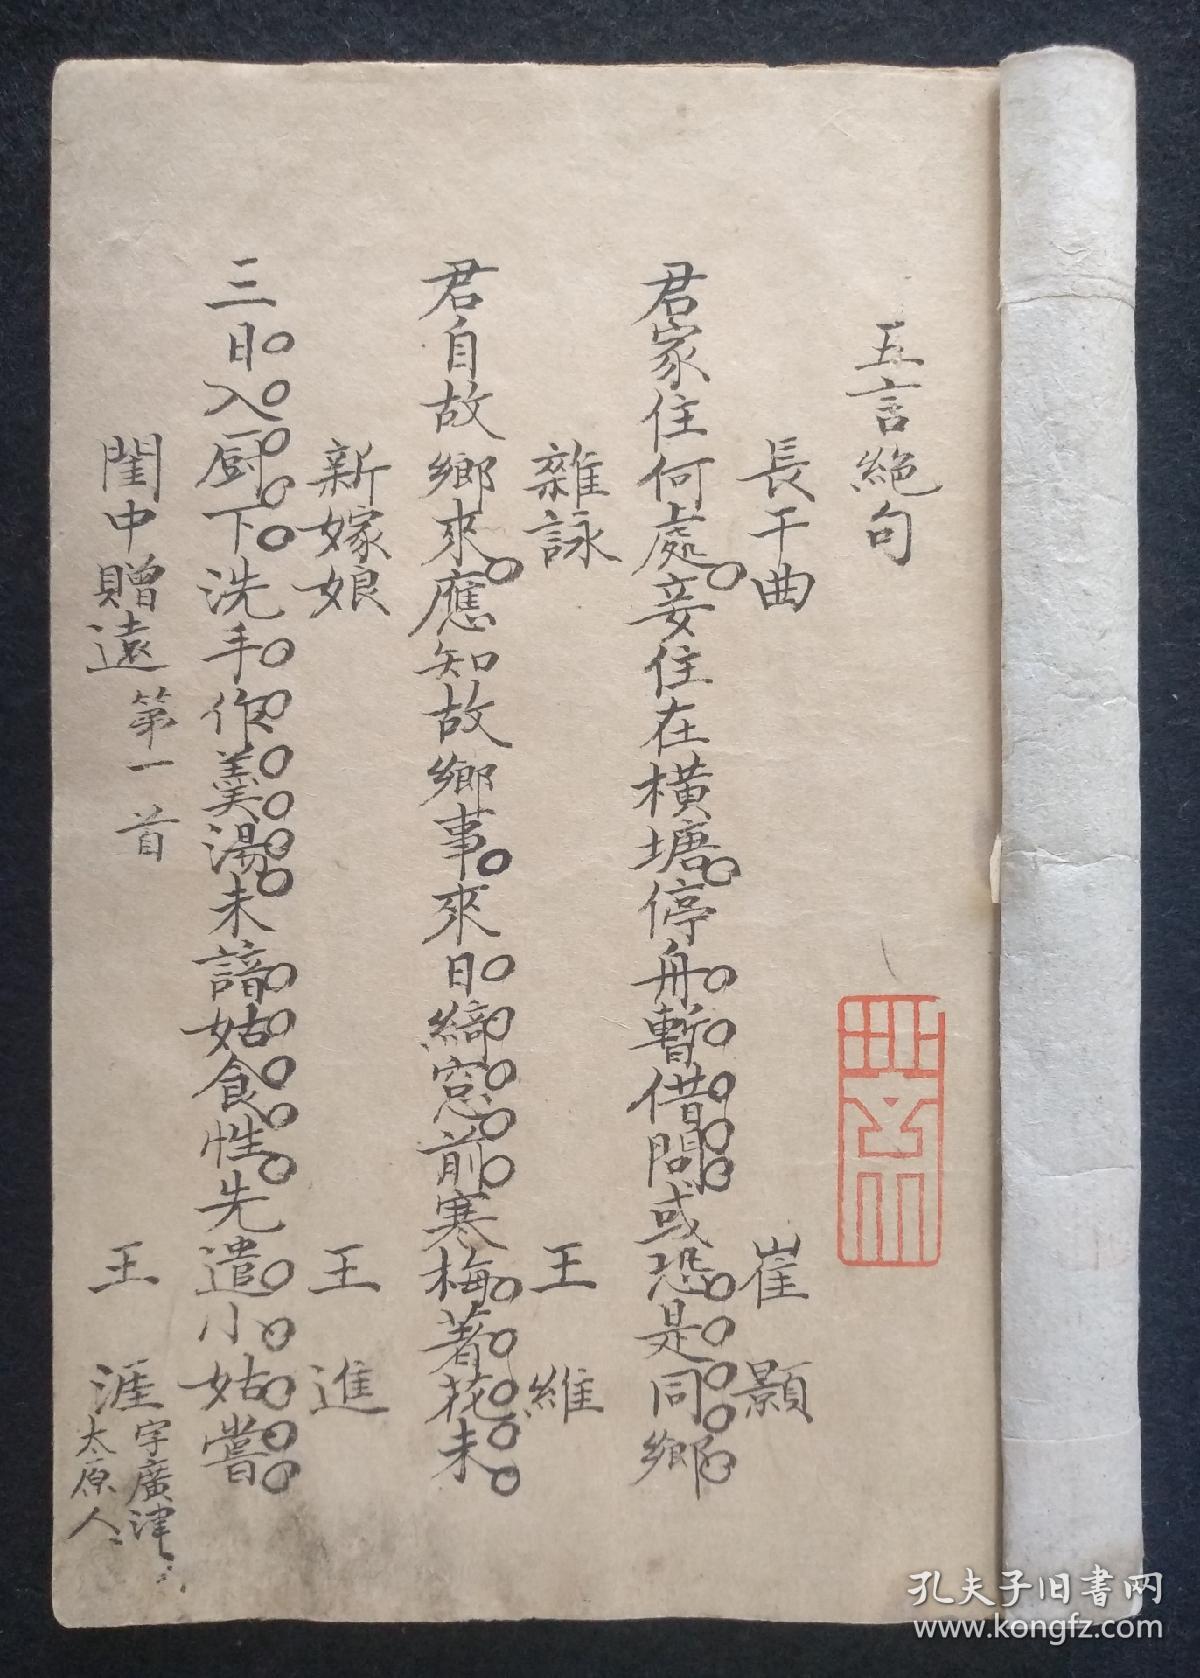 五言絶句
長干曲 崔顥
君家住何處妾住在橫塘停舟暫借問或恐是同鄉
雜詠 王維
君自故鄉來應知故鄉事來日綺窓前寒梅著花未
新嫁娘 王進
三日入厨下洗手作羹湯未諳姑食性先遣小姑嘗
閨中贈遠 第一首 王涯 字廣津 太原人
孔夫子旧书网
www.kongfz.com